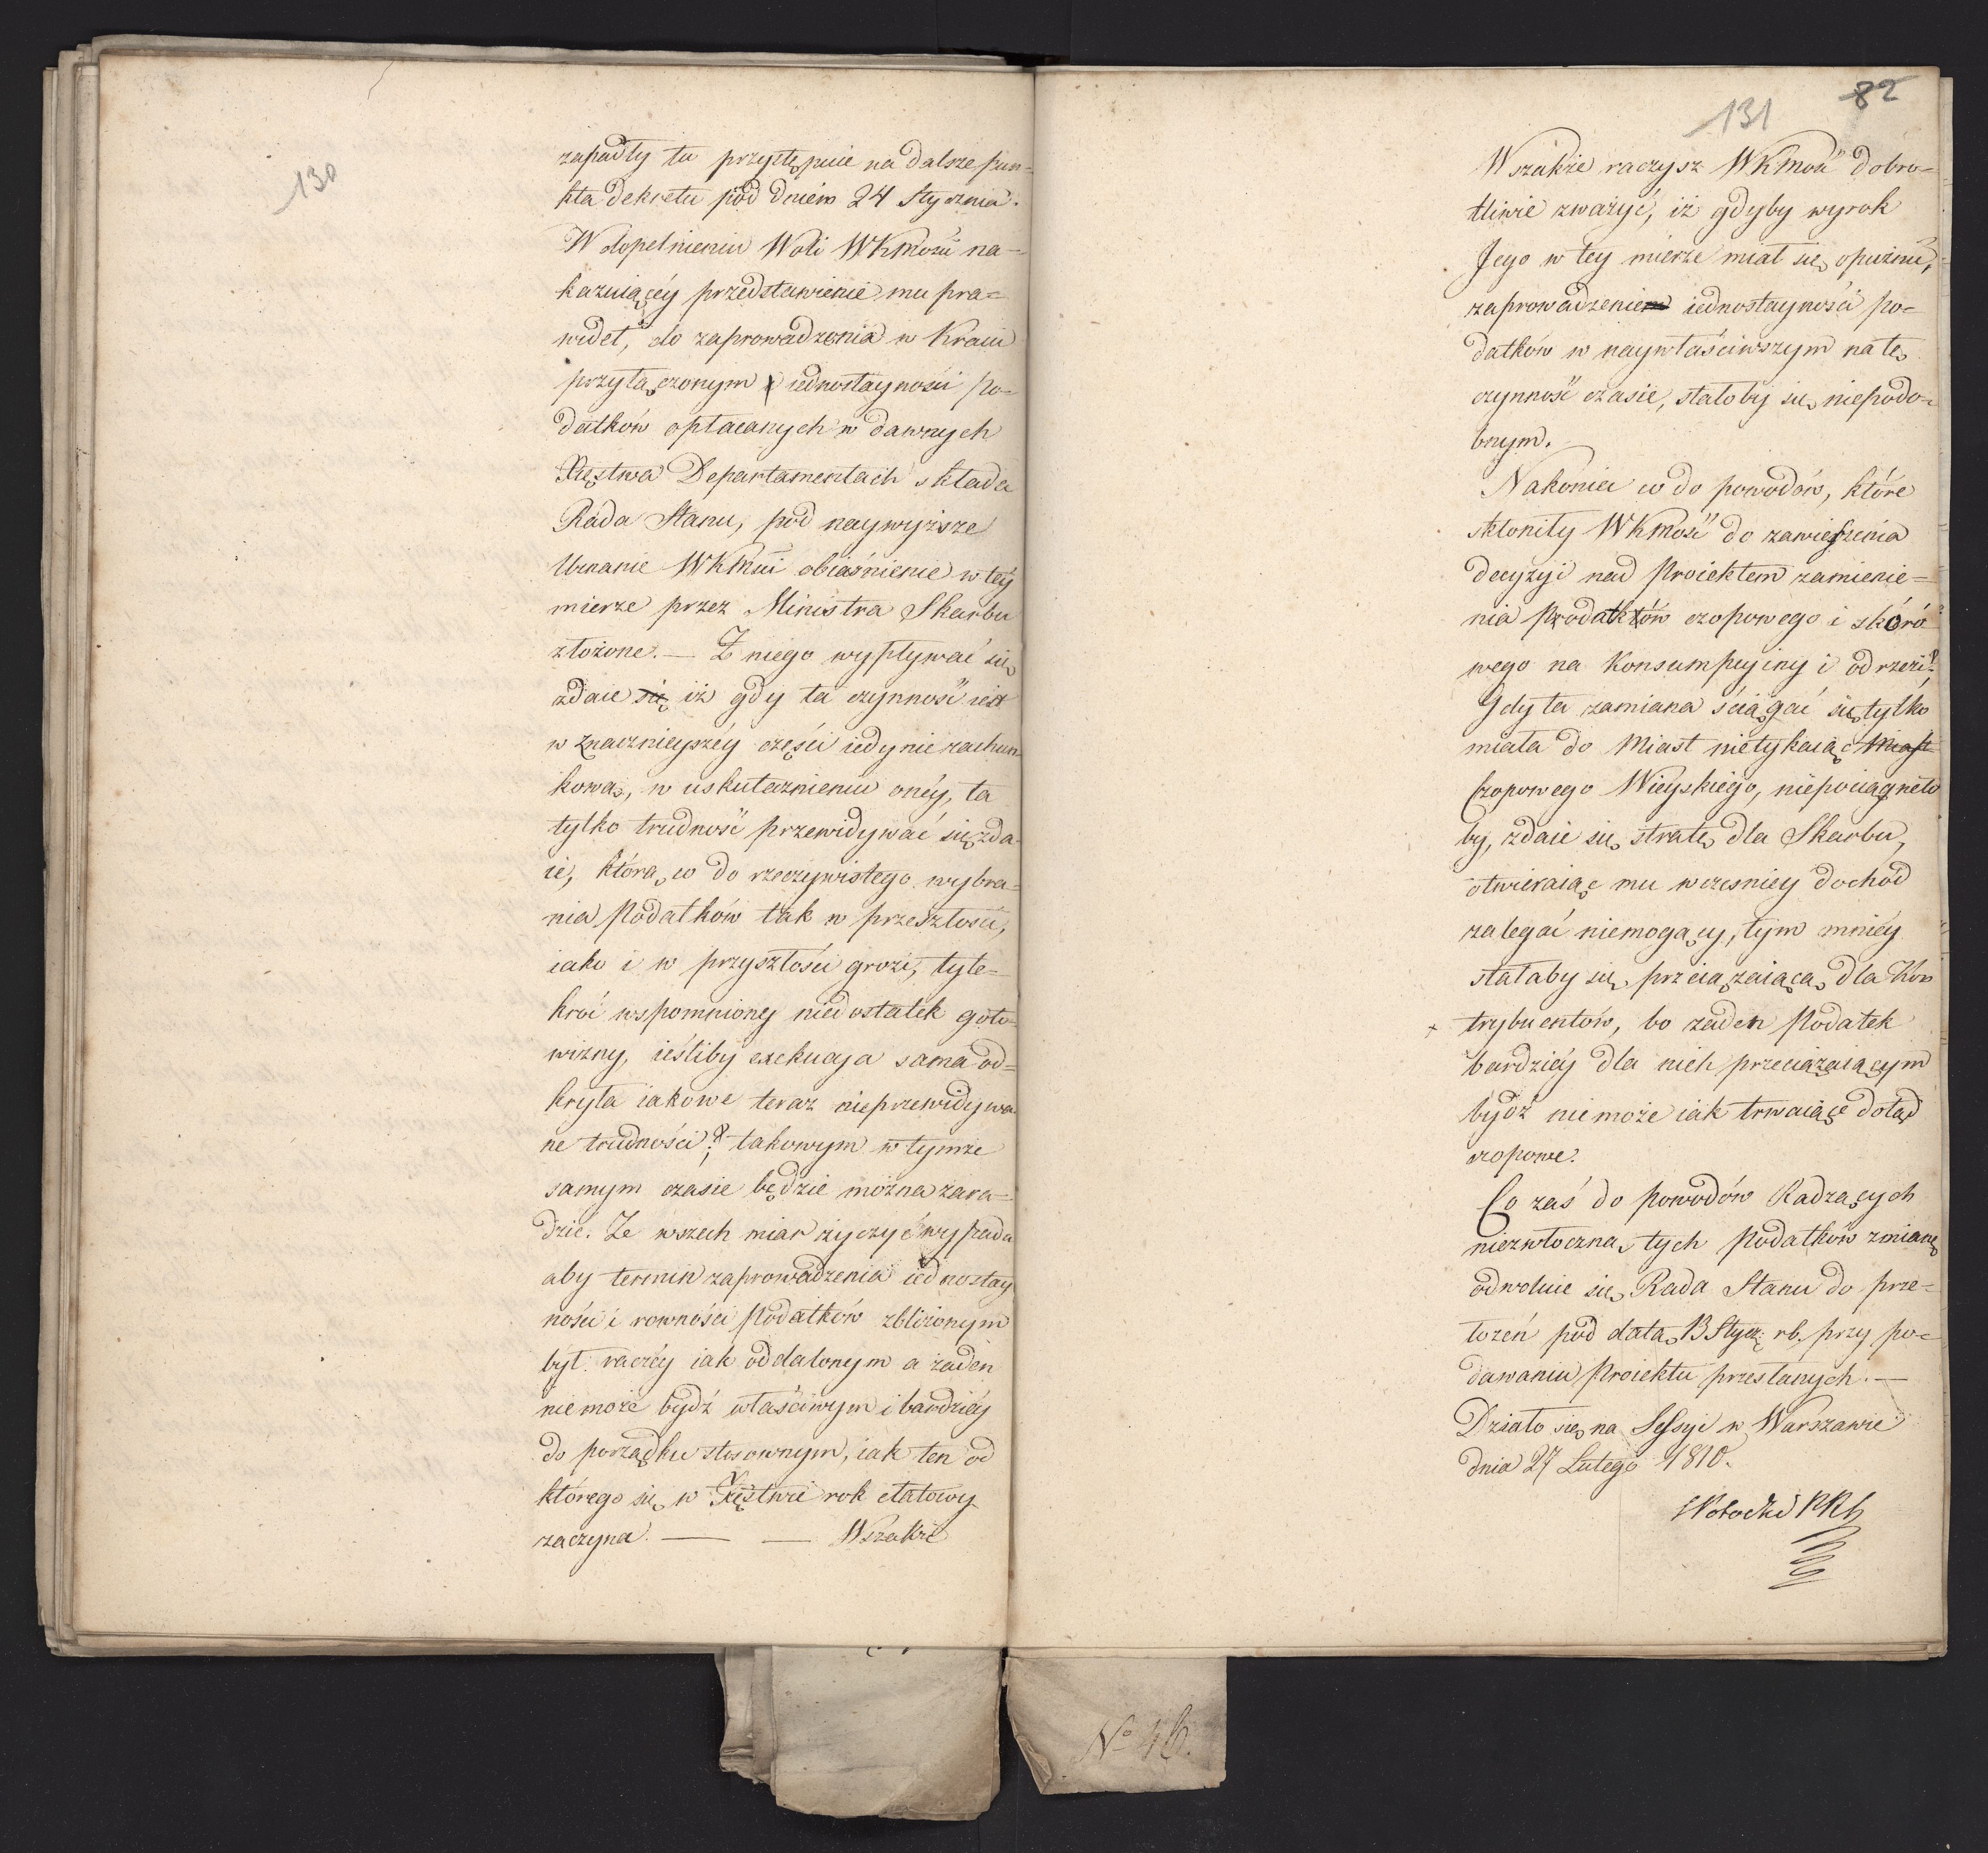 130
zapadły tu przystępuie na dalsze pun=
kta dekretu pod dniem 24 Stycznia.
W dopełnieniu Woli WKMości na=
kazuiącéy przedstawienie mu pra=
wideł, do zaprowadzenia w Kraiu
przyłączonym iednostayności po=
datków opłacanych w dawnych
Xięstwa Departamentach składa
Rada Stanu, pod naywyższe
Uznanie WKMści obiaśnienie w téy
mierze przez Ministra Skarbu
złożone. — Z niego wypływać się
zdaie się iż gdy ta czynność iest
w znacznieyszéy części iedynie rachun
kową, w uskutecznieniu onéy, ta
tylko trudność przewidywać się zda=
ie, która co do rzeczywistego wybra=
nia Podatków tak w przeszłości,
iako i w przyszłości grozi, tyle=
kroć wspomniony niedostatek goto=
wizny, ieśliby exekucya sama od=
kryła iakowe teraz nieprzewidywa
ne trudności; takowym w tymże
samym czasie będzie można zara=
dzić. Ze wszech miar życzyć wypada
aby termin zaprowadzenia iednostay
ności i rowności Podatków zbliżonym
był raczéy iak oddalonym a żaden
nie może bydź właściwym i bardziéy
do porządku stosownym, iak ten od
którego się w Xięstwie rok etatowy
zaczyna. — — Wszakże
131 82
Wszakże raczysz WKMość dobro=
tliwie zważyć, iż gdyby wyrok
Jego w tey mierze miał się opuźnić,
zaprowadzeniem iednostayności po=
datków w naywłaściwszym na tę
czynność czasie, stałoby się niepodo=
bnym.
Nakoniec co do powodów, które
skłoniły WKMość do zawieszenia
decyzyi nad Proiektem zamienie=
nia Podatków czopowego i skóro
wego na Konsumpcyiny i od rzezi.
Gdy ta zamiana ściągać się tylko
miała do Miast nietykaiąc Miast
Czopowego Wieyskiego, niepociągnęło
by, zdaie się, stratę dla Skarbu,
otwieraiąc mu wczesniey dochód
zalegać niemogący, tym mniéy
stałaby się przeciążaiącą dla Kon
trybuentów, bo żaden Podatek
bardziéy dla nich przeciążaiącym
bydź nie może iak trwaiące dotąd
czopowe.
Co zaś do powodów Radzących
niezwłoczną tych Podatków zmianę
odwołuie się Rada Stanu do prze=
łożeń pod datą 13 Stycz: rb. przy po=
dawaniu Proiektu przesłanych. —
Działo się na Sessyi w Warszawie
dnia 27 Lutego 1810.
No 46.